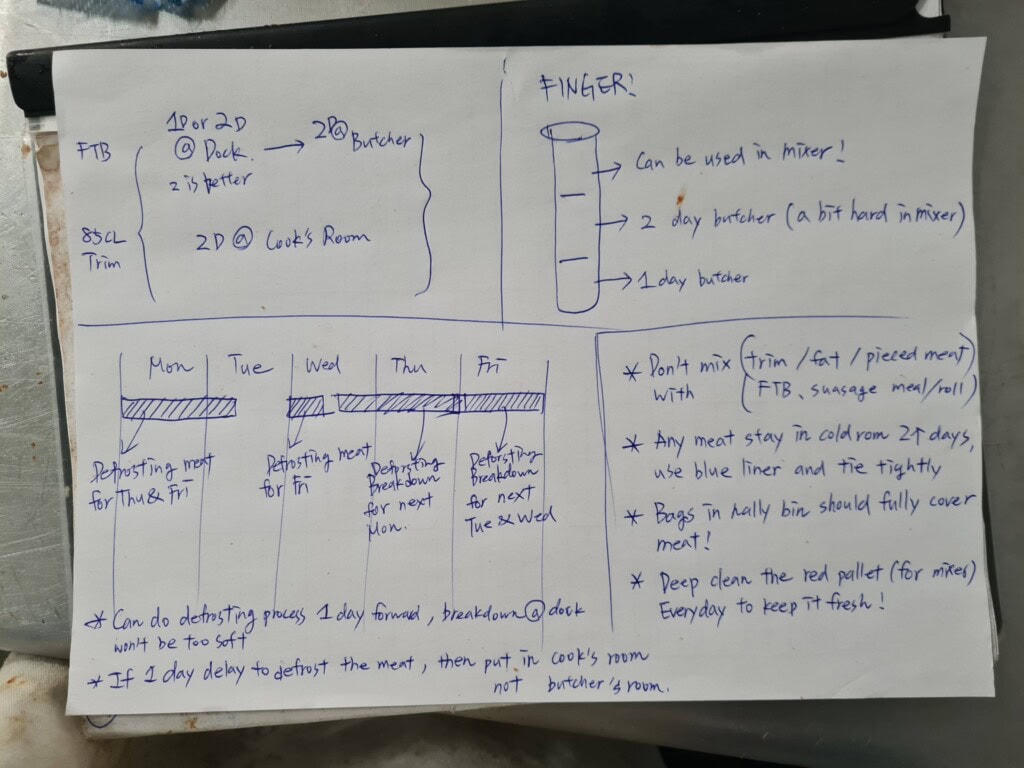 FTB
1D or 2D
@ Dock. → 2D @ Butcher
2 is better
85CL
Trim
2D @ Cook's Room
FINGER!
→ Can be used in mixer!
→ 2 day butcher (a bit hard in mixer)
→ 1 day butcher
Mon Tue Wed Thu Fri
Defrosting meat
for Thu & Fri
Defrosting meat
for Fri
Defrosting
Breakdown
for next
Mon.
Deforsting
Breakdown
for next
Tue & Wed
* Can do defrosting process 1 day forward, breakdown @ dock
won't be too soft
* If 1 day delay to defrost the meat, then put in cook's room
not butcher's room.
* Don't mix (trim / fat / pieced meat)
with (FTB、suasage meal/roll)
* Any meat stay in cold rom 2↑ days,
use blue liner and tie tightly
* Bags in nally bin should fully cover
meat!
* Deep clean the red pallet (for mixer)
Everyday to keep it fresh!